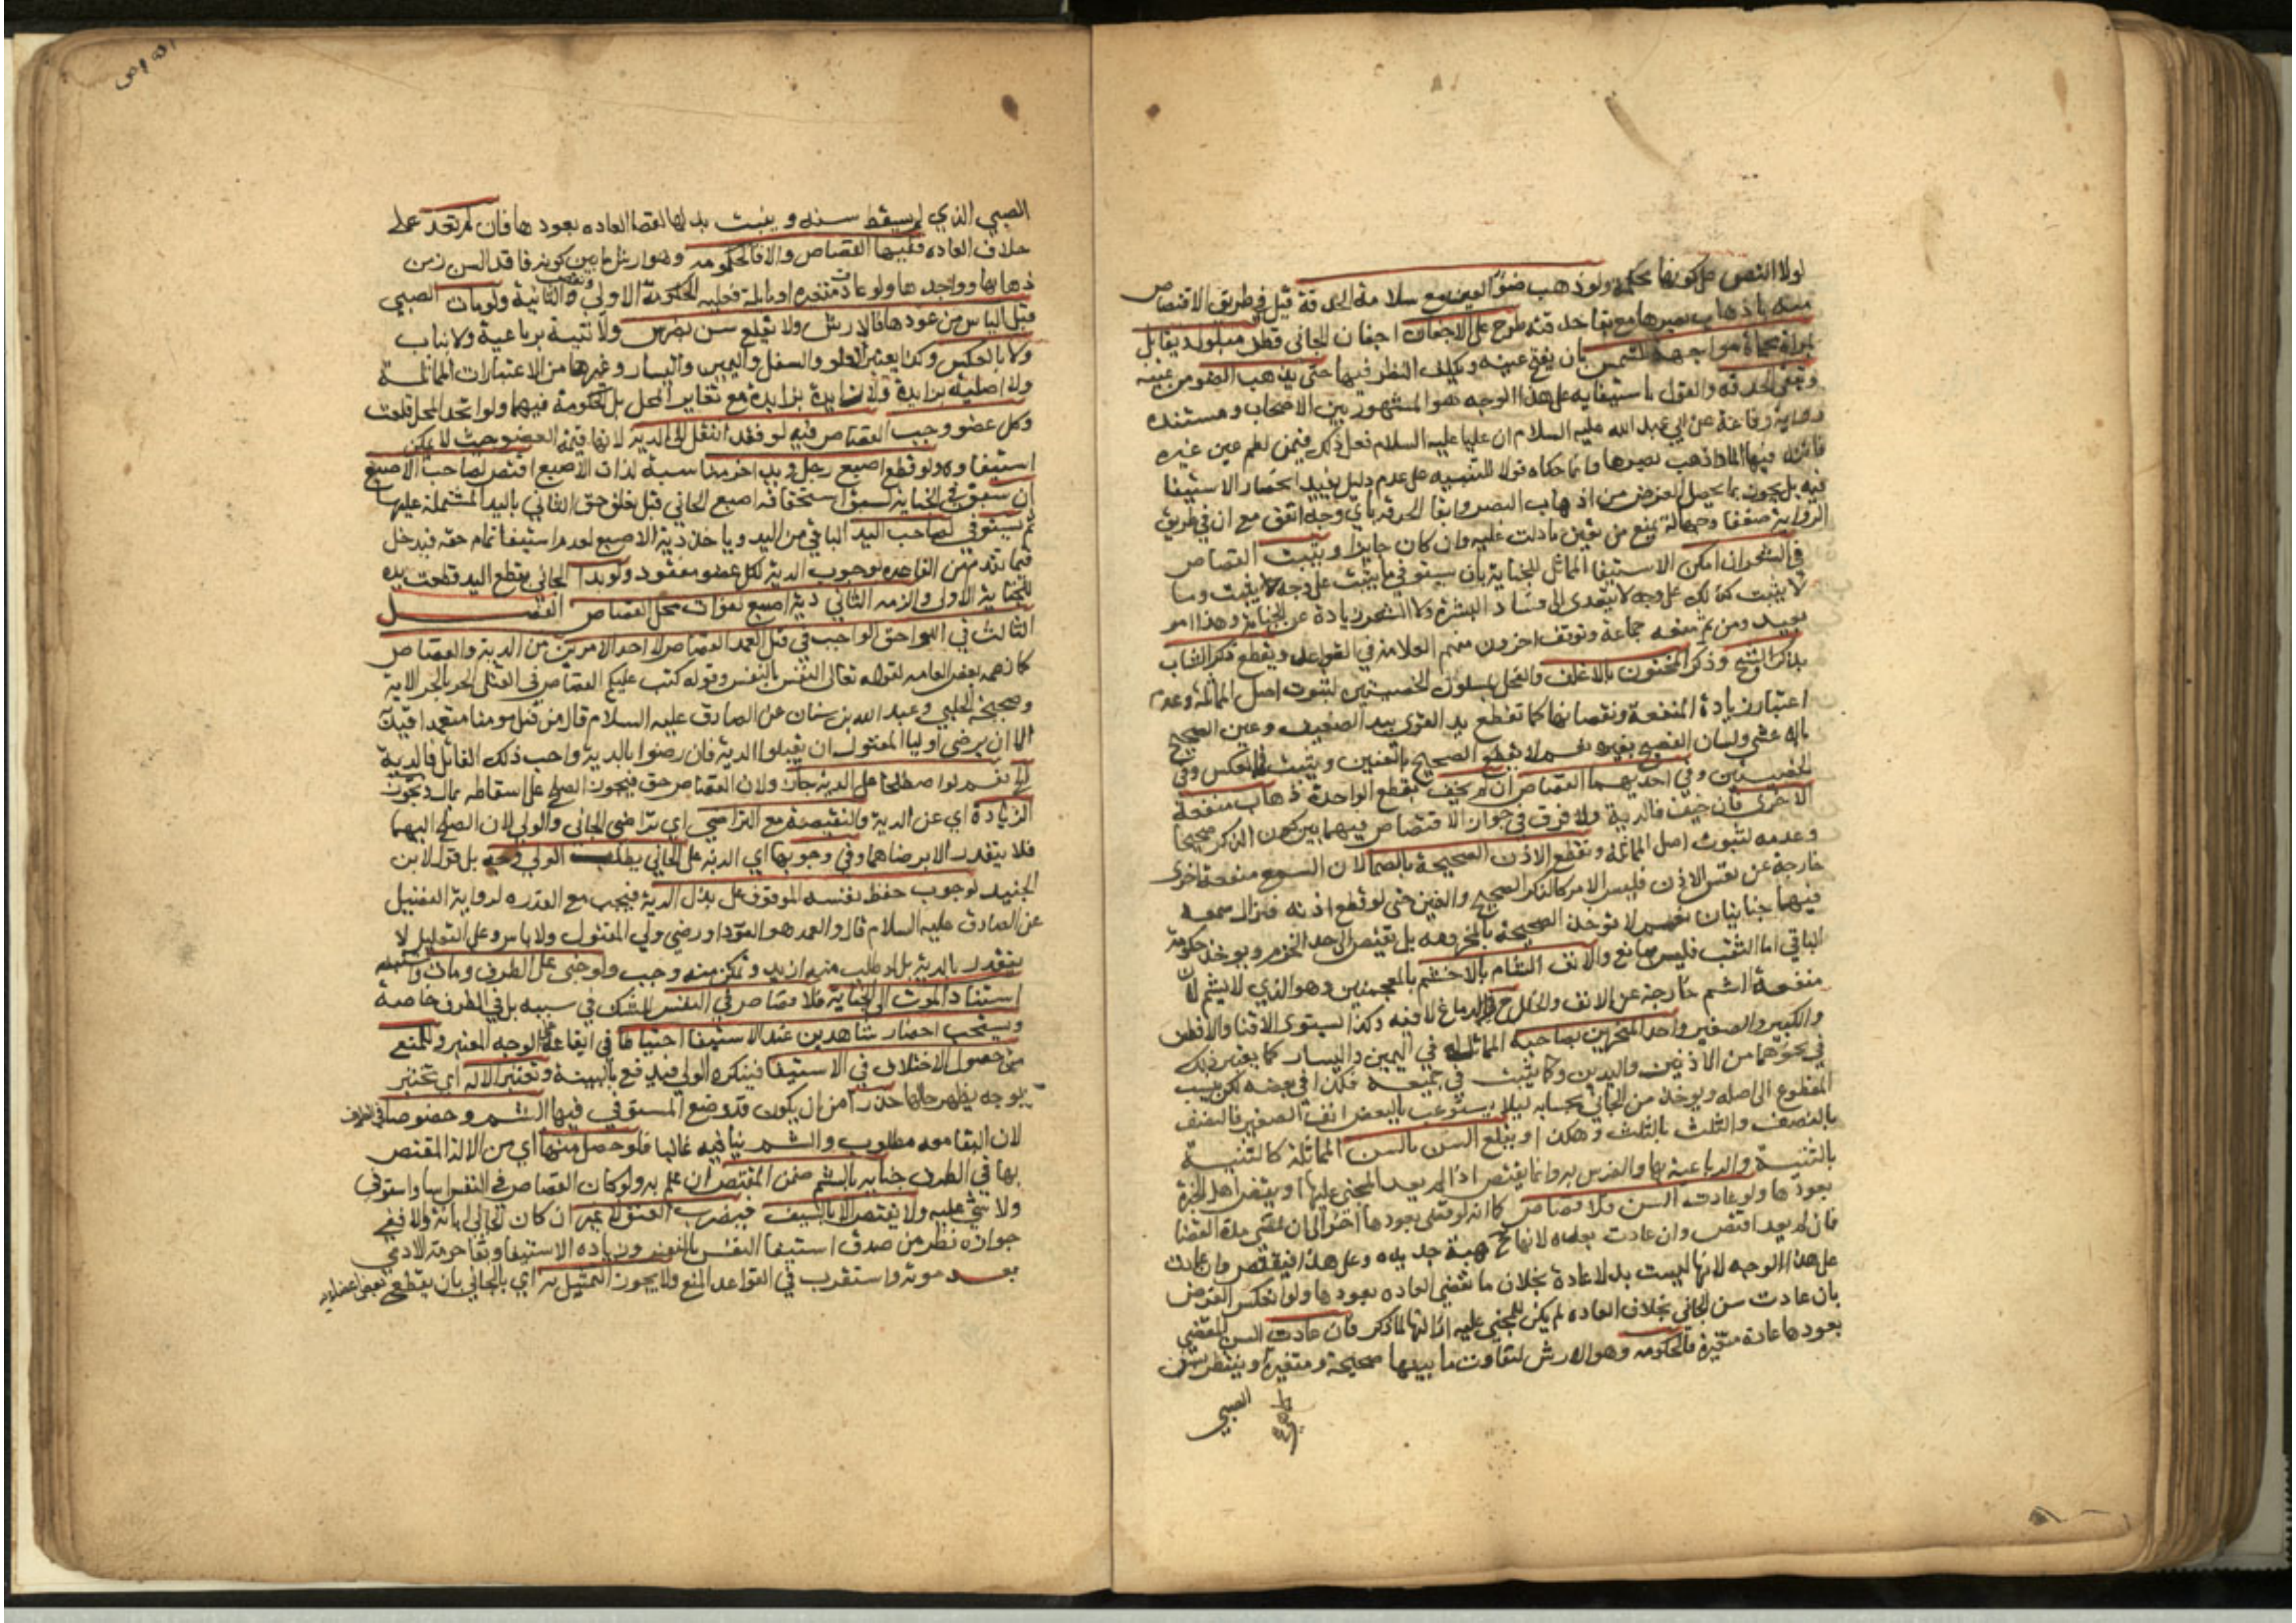 لولا النص كونها محكمة ولو ذهب ضوء العين مع سلامة الحدقة قيل في طريق الاقتصاص
منه باذهاب بصرها مع بقا حدقته طرح على الاجفان اجفان الجاني قطن مبلول ويقابل
بمراة محماة مواجهة للشمس بان يفتح عينيه ويكلف النظر فيها حتى يذهب الضو من عينه
وتبقى الحدقة والقول باستيفايه على هذا الوجه هو المشهور بين الاصحاب ومستنده
رواية رفاعة عن ابي عبد الله عليه السلام ان عليا عليه السلام فعل ذلك فيمن لطم عين غيره
فانزل فيها الما وذهب بصرها وانما حكاه قولا للتنبيه على عدم دليل يفيد انحصار الاستيفا
فيه بل يجوز بما يحصل الغرض من اذهاب البصر وابقا الحدقة باي وجه اتفق مع ان في طريق
الرواية ضعفا وجهالة يمنع من تعين ما دلت عليه وان كان جايزا ويثبت القصاص
في الشعر ان امكن الاستيفا المماثل للجناية بان يستوفي ما ينبت على وجه لا ينبت وما
لا ينبت كذلك على وجه لا يتعدى الى فساد البشرة ولا الشعر زيادة عن الجناية وهذا امر
بعيد ومن ثم منعه جماعة وتوقف اخرون منهم العلامة في القواعد ويقطع ذكر الشاب
بذكر الشيخ وذكر المختون بالاغلف والفحل بمسلول الخصيتين لثبوت اصل المماثلة وعدم
اعتبار زيادة المنفعة ونقصانها كما تقطع يد القوي بيد الضعيف وعين الصحيح
بالاعشى ولسان الفصيح بغيره نعم لا يقطع الصحيح بالعنين ويثبت في العكس وفي
الخصيتين وفي احديهما القصاص ان لم يخف بقطع الواحدة ذهاب منفعة
الاخرى فان خيف فالدية ولا فرق في جواز الاقتصاص فيهما بين كون الذكر صحيحا
وعدمه لثبوت اصل المماثلة وتقطع الاذن الصحيحة بالصما لان السمع منفعة اخرى
خارجة عن نفس الاذن فليس الامر كالذكر الصحيح والعنين حتى لو قطع اذنه فزال سمعه
فيهما جنايتان نعم لا توخذ الصحيحة بالمخرومة بل يقتص الى حد الخرم ويوخذ حكومة
الباقي اما الثقب فليس بمانع والانف الشام بالاخشم بالمعجمتين وهو الذي لا يشم لان
منفعة الشم خارجة عن الانف والخلل في الدماغ لا فيه وكذا يستوى الاقنا والافطس
والكبير والصغير واحد المنخرين بصاحبه المماثل له في اليمين واليسار كما يعتبر ذلك
في نحوهما من الاذنين واليدين وكما يثبت في جميعه فكذا في بعضه لكن ينسب
المقطوع الى اصله ويوخذ من الجاني بحسابه ليلا يستوعب بالبعض انف الصغير فالنصف
بالنصف والثلث بالثلث وهكذا وتقلع السن بالسن المماثلة كالثنية
بالثنية والرباعية بها والضرس به وانما يقتص اذا لم يعد المجني عليها او يقض اهل الخبرة
بعودها ولو عادت السن فلا قصاص كما انه لو قضى بعودها اخر الى ان تمضي مدة القضا
فان لم يعد اقتص وان عادت بعده لانها ح هبة جديدة وعلى هذا فيقتص وان عادت
على هذا الوجه لانها ليست بدلا عادة بخلاف ما تقضي العاده بعودها ولو انعكس الفرض
بان عادت سن الجاني بخلاف العاده لم يكن للمجني عليه ازالتها لما ذكر فان عادت السن المقضي
بعودها عادة متغيرة فالحكومة وهو الارش لتفاوت ما بينها صحيحة ومتغيرة وينتظر بسن
الصبي
الصبي الذي لم يسقط سنه وينبت بدلها لقضا العاده بعودها فان لم تعد على
خلاف العاده ففيها القصاص والا فالحكومة وهو ارش ما بين كونه فاقد السن زمن
ذهابها وواجدها ولو عادت متغيره او مايلة فعليه الحكومة الاولى ونقص الثانية ولو مات الصبي
قبل الياس من عودها فالارش ولا يقلع سن بضرس ولا ثنية برباعية ولا بناب
ولا بالعكس وكذا يعتبر العلو والسفل واليمين واليسار وغيرها من الاعتبارات المماثلة
ولا اصلية بزايدة ولا زايدة بزايدة مع تغاير المحل بل الحكومة فيهما ولو اتحد المحل قلعت
وكل عضو وجب القصاص فيه لو فقد انتقل الى الدية لانها قيمة العضو حيث لا يمكن
استيفاوه ولو قطع اصبع رجل ويد اخر مناسبة لذات الاصبع اقتص لصاحب الاصبع
ان سبق في الجناية لسبق استحقاقه اصبع الجاني قبل تعلق حق الثاني باليد المشتملة عليها
ثم يستوفي لصاحب اليد الباقي من اليد وياخذ دية الاصبع لعدم استيفا تمام حقه فيدخل
فيما تقدم من القاعدة لوجوب الدية لكل عضو مفقود ولو بدا الجاني بقطع اليد قطعت يده
للجناية الاولى والزمه الثاني دية اصبع لفوات محل القصاص الفصل
الثالث في اللواحق الواجب في قتل العمد القصاص لا احد الامرين من الدية والقصاص
كما زعمه بعض العامه لقوله تعالى النفس بالنفس وقوله كتب عليكم القصاص في القتلى الحر بالحر الاية
وصحيحة الحلبي وعبد الله بن سنان عن الصادق عليه السلام قال من قتل مومنا متعمدا قيد به
الا ان يرضى اوليا المقتول ان يقبلوا الدية فان رضوا بالدية واحب ذلك القاتل فالدية
الخ نعم لو اصطلحا على الدية جاز ولان القصاص حق فيجوز الصلح على اسقاطه بمال وتجوز
الزيادة اي عن الدية والنقيصة مع التراضي اي تراضي الجاني والولي لان الصلح اليهما
فلا يتقدر الا برضاهما وفي وجوبها اي الدية على الجاني بطلب الولي وجه بل قول لابن
الجنيد لوجوب حفظ نفسه الموقوف على بذل الدية فيجب مع القدره لرواية الفضيل
عن الصادق عليه السلام قال والعمد هو القود او رضى ولي المقتول ولا باس وعلى التعليل لا
يتقدر بالدية بل لو طلب منه ازيد وتمكن منه وجب ولو جنى على الطرف ومات واشتبه
استناد الموت الى الجناية فلا قصاص في النفس للشك في سببه بل في الطرف خاصة
ويستحب احضار شاهدين عند الاستيفا احتياطا في ايقاعه على الوجه المعتبر وللمنع
من حصول الاختلاف في الاستيفا فينكره الولي فيدفع بالبينة وتعتبر الاله اي تختبر
بوجه يظهر حالها حذرا من ان يكون قد وضع المستوفي فيها السم وخصوصا في الطرف
لان البقا معه مطلوب والسم ينافيه غالبا فلو حصل منها اي من الالة المقتص
بها في الطرف جناية بالسم ضمن المقتص ان علم به ولو كان القصاص في النفس اسا واستوفي
ولا شي عليه ولا يقتص الا بالسيف فيضرب العنق لا غير ان كان الجاني ابانه والا ففي
جوازه نظر من صدق استيفا النفس بالنفس وزياده الاستيفا وبقا حرمة الادمي
بعد موته واستقرب في القواعد المنع ولا يجوز التمثيل به اي بالجاني بان يقطع بعض اعضايه